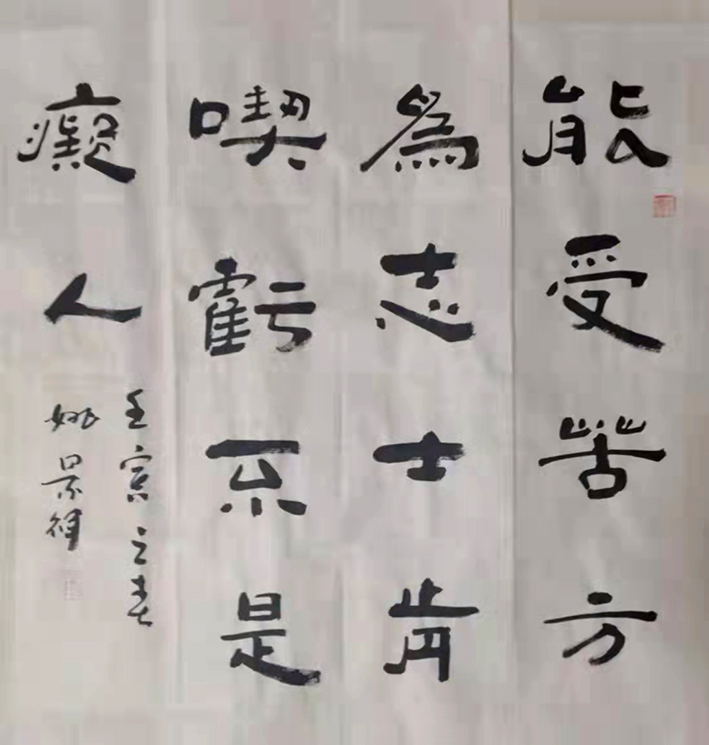 能受苦方
為志士肯
喫虧不是
癡人
壬寅之春
姚景